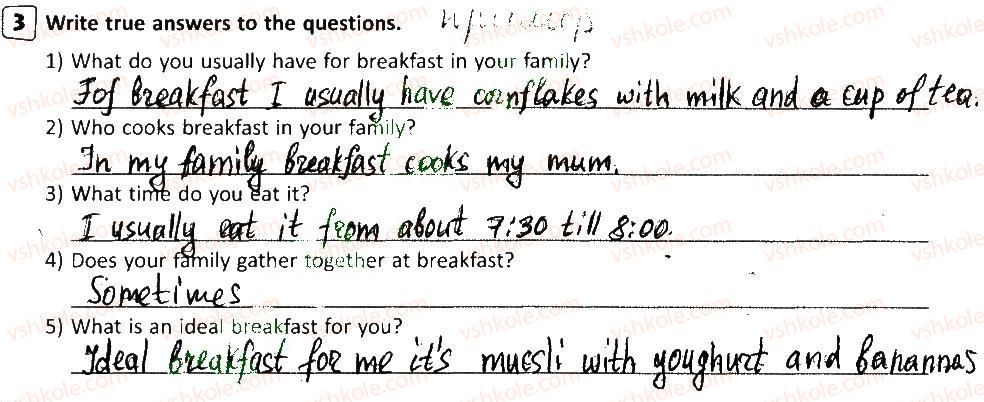 3 Write true answers to the questions. пример
1) What do you usually have for breakfast in your family?
Fof breakfast I usually have cornflakes with milk and a cup of tea.
2) Who cooks breakfast in your family?
In my family breakfast cooks my mum.
3) What time do you eat it?
I usually eat it from about 7:30 till 8:00.
4) Does your family gather together at breakfast?
Sometimes
5) What is an ideal breakfast for you?
Ideal breakfast for me it's muesli with youghurt and banannas